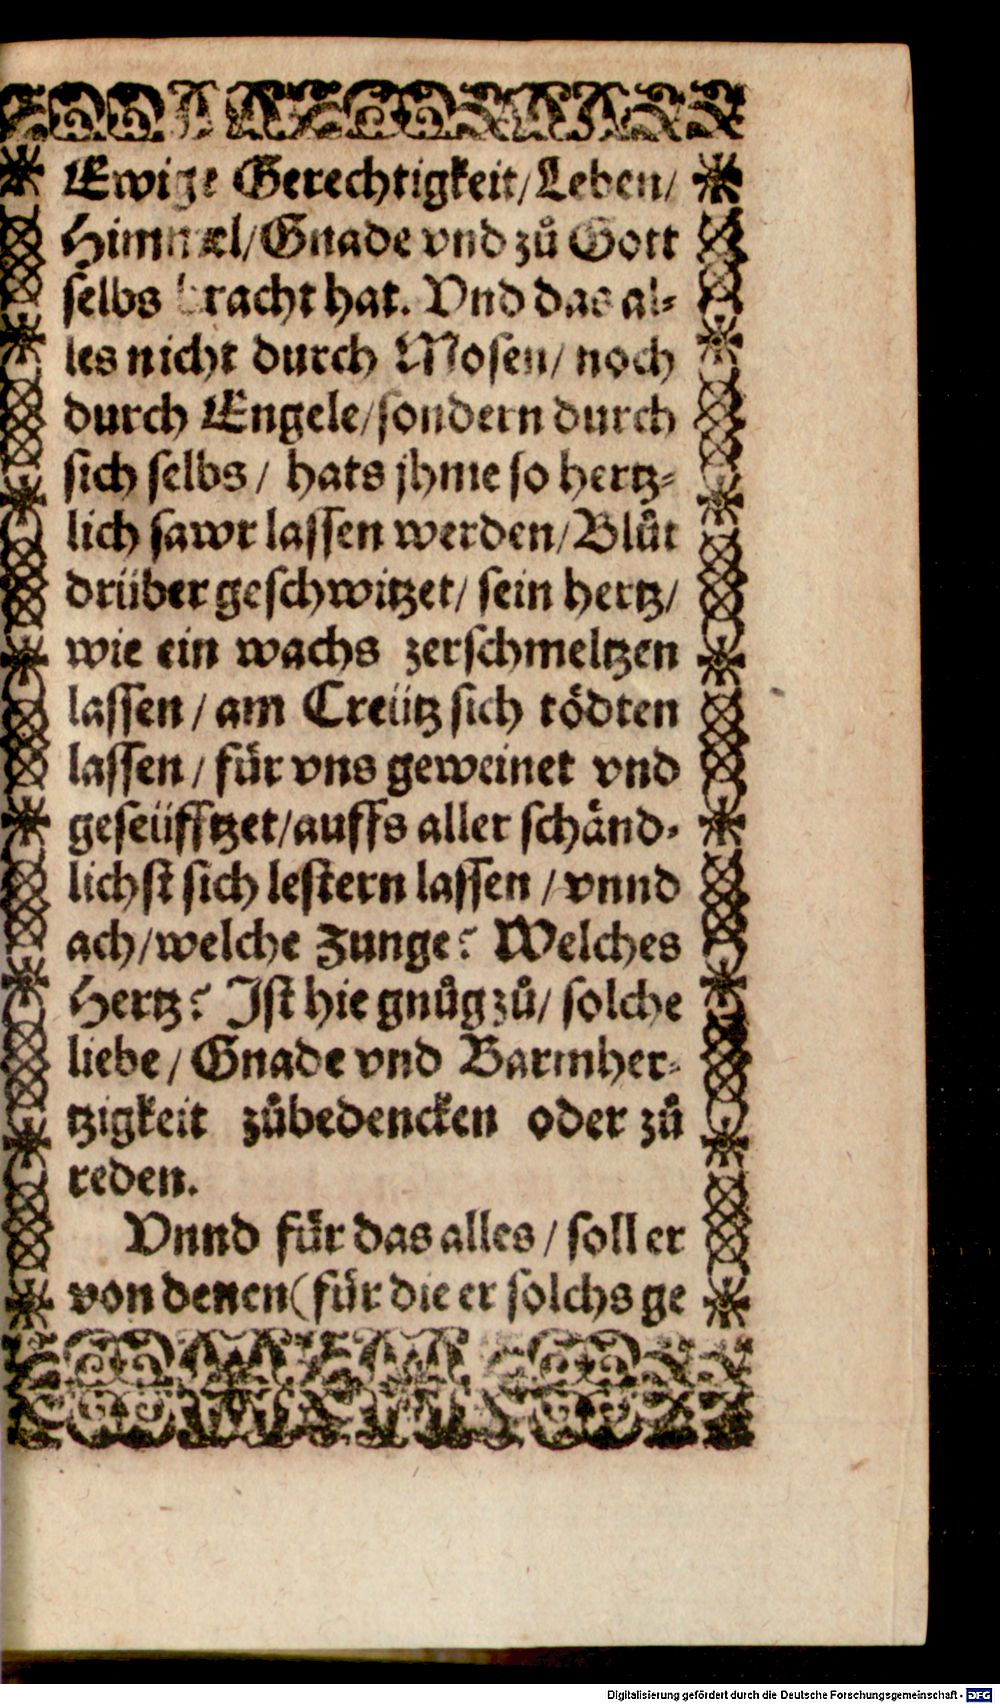 Ewige Gerechtigkeit/Leben/
Himmel/Gnade vnd zů Gott
selbs bracht hat. Vnd das al-
les nicht durch Mosen/ noch
durch Engele/sondern durch
sich selbs / hats jhme so hertz-
lich sawr lassen werden/Blůt
drüber geschwitzet/ sein hertz/
wie ein wachs zerschmeltzen
lassen / am Creütz sich tödten
lassen / für vns geweinet vnd
geseüfftzet/auffs aller schänd-
lichst sich lestern lassen / vnnd
ach/welche Zunge? Welches
Hertz? Ist hie gnůg zů/ solche
liebe / Gnade vnd Barmher-
tzigkeit zůbedencken oder zů
reden.
Vnnd für das alles / soll er
von denen (für die er solchs ge
Digitalisierung gefördert durch die Deutsche Forschungsgemeinschaft - DFG